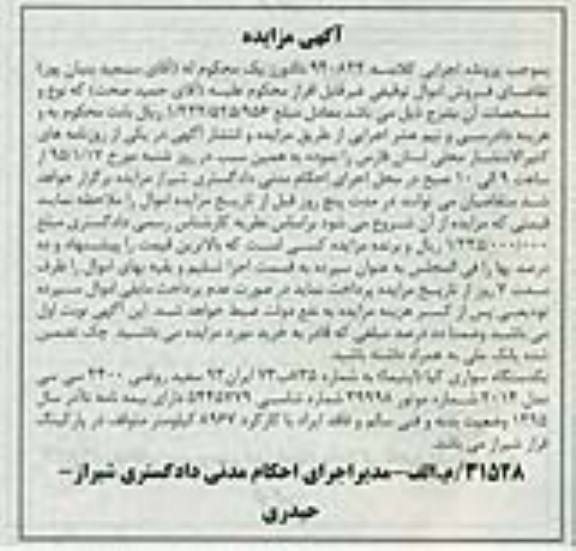 آگهی مزایده
بموجب پرونده اجرایی کلاسه ۹۴۰۸۲۴ دادورز یک محکوم له (آقای سعید بنیان پور)
تقاضای فروش اموال توقیفی غیرقابل افراز محکوم علیه (آقای حمید صحت) که نوع و
مشخصات آن بشرح ذیل می باشد معادل مبلغ ۱/۲۳۳/۵۲۵/۹۵۶ ریال بابت محکوم به و
هزینه دادرسی و نیم عشر اجرایی از طریق مزایده و انتشار آگهی در یکی از روزنامه های
کثیرالانتشار محلی استان فارس را نموده به همین سبب در روز شنبه مورخ ۹۵/۱/۱۴ از
ساعت ۹ الی ۱۰ صبح در محل اجرای احکام مدنی دادگستری شیراز مزایده برگزار خواهد
شد متقاضیان می توانند در مدت پنج روز قبل از تاریخ مزایده اموال را ملاحظه نمایند
قیمتی که مزایده از آن شروع می شود براساس نظریه کارشناس رسمی دادگستری مبلغ
ریال و برنده مزایده کسی است که بالاترین قیمت را پیشنهاد و ده
درصد بها را فی المجلس به عنوان سپرده به قسمت اجرا تسلیم و بقیه بهای اموال را ظرف
مدت روز از تاریخ مزایده پرداخت نماید در صورت عدم پرداخت مابقی اموال سپرده
تودیعی پس از کسر هزینه مزایده به نفع دولت ضبط خواهد شد. این آگهی نوبت اول
می باشد وضمنا ده درصد مبلغی که قادر به خرید مورد مزایده می باشید چک تضمین
شده بانک ملی به همراه داشته باشید.
یکدستگاه سواری کیا (اپتیما) به شماره ایران ۹۳ سفید روغنی ۲۴۰۰ سی سی
مدل ۲۰۱۴ شماره موتور ۳۹۹۹۸ شماره شاسی ۵۴۴۵۷۷۹ دارای بیمه نامه تا آذر سال
۱۳۹۵ وضعیت بدنه و فنی سالم و فاقد ایراد با کارکرد ۸۹۶۷ کیلومتر متوقف در پارکینگ
قرار شیراز می باشد.
۳۱۵۲۸/م‌الف-مدیراجرای احکام مدنی دادگستری شیراز-
حیدری